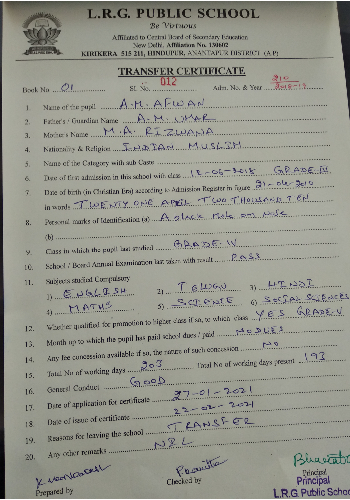 L.R.G. PUBLIC SCHOOL
Be Virtuous
Affiliated to Central Board of Secondary Education
New Delhi, Affiliation No. 130602
KIRIKERA 515 211, HINDUPUR, ANANTAPUR DISTRICT (A.P)
TRANSFER CERTIFICATE
Book No. 01 Sl. No. 012 Adm. No. & Year
1. Name of the pupil A.M. AFWAN
2. Father's / Guardian Name A.M. UMAR
3. Mother's Name M.A. RIZWANA
4. Nationality & Religion INDIAN MUSLIM
5. Name of the Category with sub Caste
6. Date of first admission in this school with class 12-06-2018 GRADE
7. Date of birth (in Christian Era) according to Admission Register in figure 21-04-2010
in words TWENTY ONE APRIL TWO THOUSAND TEN
8. Personal marks of Identification (a) A black mole on
(b)
9. Class in which the pupil last studied GRADE IV
10. School / Board Annual Examination last taken with result PASS
11. Subjects studied Compulsory
1) ENGLISH 2) TELUGU 3) HINDI
4) MATHS 5) SCIENCE 6) SOCIAL SCIENCES
12. Whether qualified for promotion to higher class if so, to which class YES GRADE V
13. Month up to which the pupil has paid school dues / paid NO DUES
14. Any fee concession availed if so, the nature of such concession NO
15. Total No of working days 203 Total No of working days present 193
16. General Conduct GOOD
17. Date of application for certificate 27-01-2021
18. Date of issue of certificate 22-02-2021
19. Reasons for leaving the school TRANSFER
20. Any other remarks NIL
Prepared by
Checked by
Principal
Principal
L.R.G. Public School